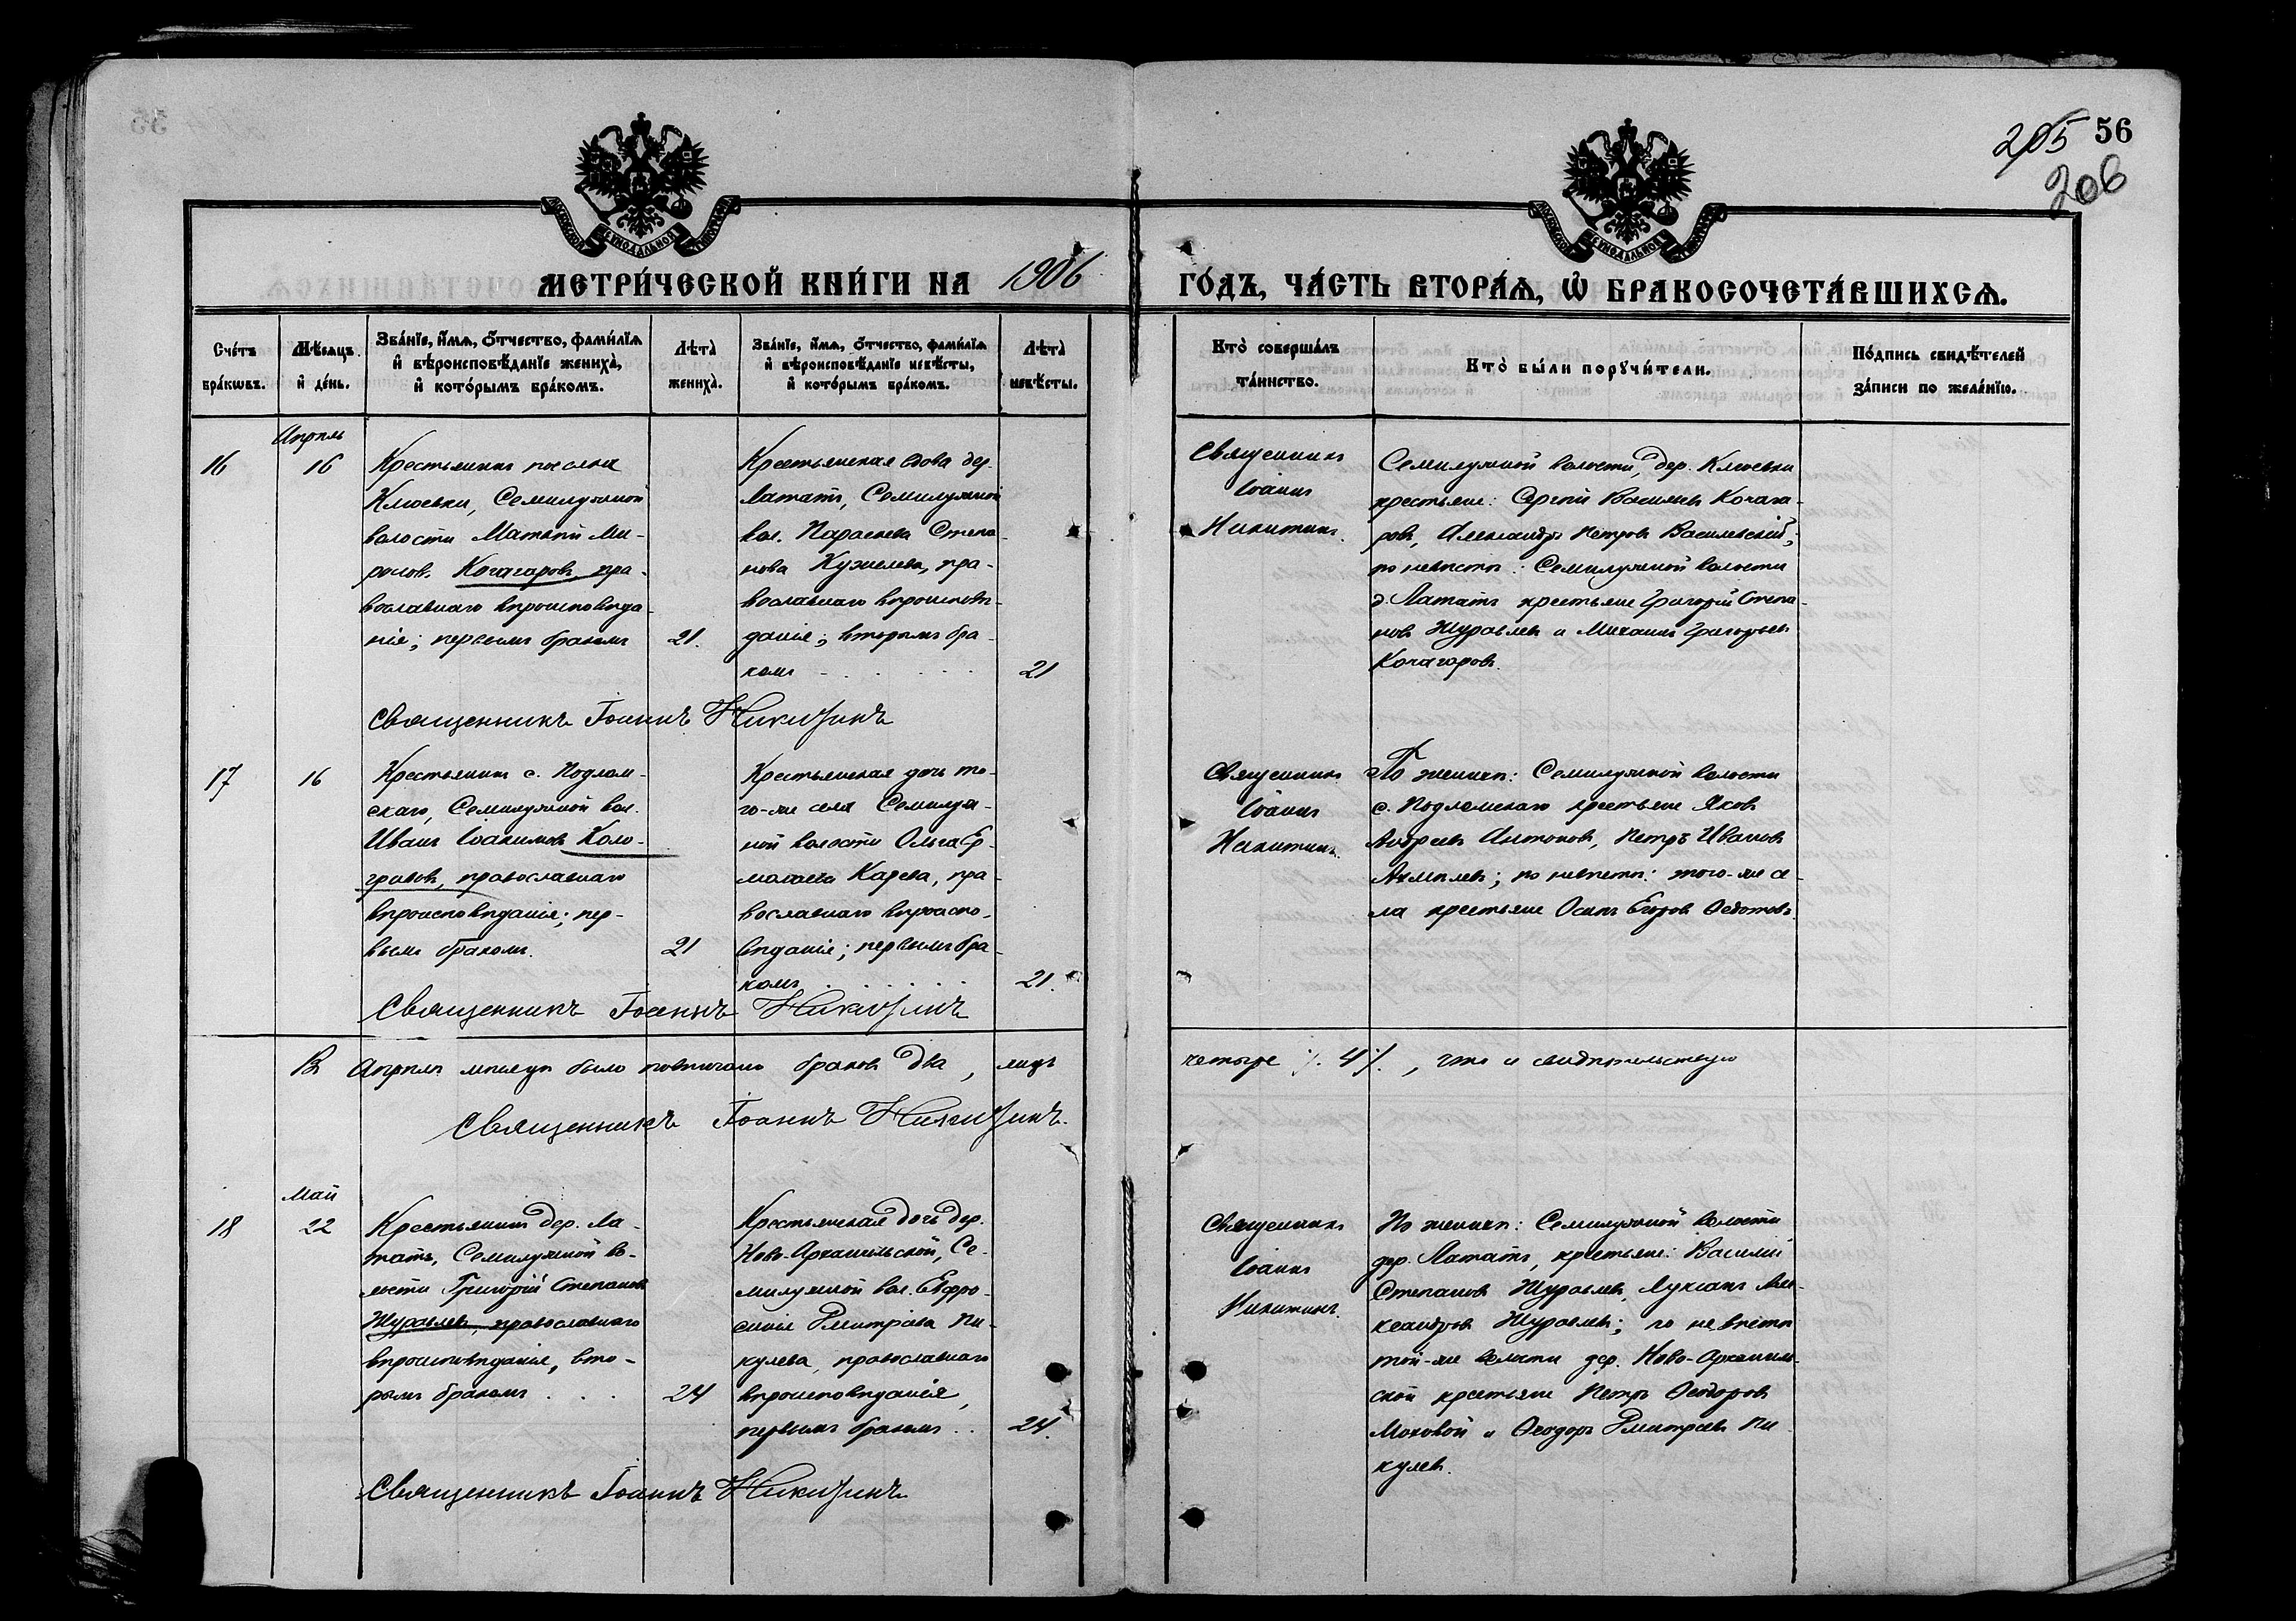 205 56
206
МЕТРИ́ЧЕСКОЙ КНИ́ГИ НА 1906 ГО́ДЪ, ЧА́СТЬ ВТОРА́Ѧ, Ѡ БРАКОСОЧЕТА́ВШИХСѦ.
Сче́тъ бра́кѡвъ.
Мѣ́сяцъ и де́нь.
Зва́нїе, и́мѧ, ѻ́тчество, фами́лїѧ и вѣроисповѣ́данїе жениха̀, и кото́рымъ бра́комъ.
Лѣта̀ жениха̀.
Зва́нїе, и́мѧ, ѻ́тчество, фами́лїѧ и вѣроисповѣ́данїе невѣ́сты, и кото́рымъ бра́комъ.
Лѣта̀ невѣ́сты.
Кто̀ соверша́лъ та́инство.
Кто̀ бы́ли порꙋчи́тели.
По́дпись свидѣ́телей за́писи по жела́нїю.
Апрѣль
16
16
Крестьянинъ поселка
Ключевки, Семилужной
волости Матвѣй Ми-
роновъ Кочагаровъ, пра-
вославнаго вѣроисповѣда-
нія; первымъ бракомъ
21.
Крестьянская вдова дер.
Лататъ, Семилужной
вол. Параскева Степа-
нова Кужелева, пра-
вославнаго вѣроисповѣ-
данія; вторымъ бра-
комъ
21
Священникъ
Іоаннъ
Никитинъ.
Семилужной волости, дер. Ключевки
крестьяне: Сергѣй Васильевъ Кочага-
ровъ, Александръ Петровъ Василевскій;
по невѣстѣ: Семилужной волости
д. Лататъ крестьяне Григорій Степа-
новъ Журавлевъ и Михаилъ Григорьевъ
Кочагаровъ.
Священникъ Іоаннъ Никитинъ
17
16
Крестьянинъ с. Подлом-
скаго, Семилужной вол.
Иванъ Іоакимовъ Коло-
гривовъ, православнаго
вѣроисповѣданія; пер-
вымъ бракомъ.
21
Крестьянская дочь то-
го-же села Семилуж-
ной волости Ольга Ер-
молаева Карева, пра-
вославнаго вѣроиспо-
вѣданія; первымъ бра-
комъ
21.
Священникъ
Іоаннъ
Никитинъ.
По женихѣ: Семилужной волости
с. Подломскаго крестьяне Яковъ
Андреевъ Антоновъ, Петръ Ивановъ
по невѣстѣ: того-же се-
ла крестьяне Осипъ Егоровъ Ѳедотовъ.
Священникъ Іоаннъ Никитинъ
Въ Апрѣлѣ мѣсяцѣ было повѣнчано браковъ два, лицъ четыре /. 4 /., что и свидѣтельствую
Священникъ Іоаннъ Никитинъ.
Май
18
22
Крестьянинъ дер. Ла-
татъ, Семилужной во-
лости Григорій Степановъ
Журавлевъ, православнаго
вѣроисповѣданія, вто-
рымъ бракомъ . . .
24
Крестьянская дочь дер.
Ново-Архангельской, Се-
милужной вол. Евфро-
синія Дмитріева Пи-
кулева, православнаго
вѣроисповѣданія,
первымъ бракомъ . .
24.
Священникъ
Іоаннъ
Никитинъ.
По женихѣ: Семилужной волости
дер. Лататъ, крестьяне: Василій
Степановъ Журавлевъ, Лукіанъ Але-
ксандровъ Журавлевъ; по невѣстѣ
той-же волости дер. Ново-Архангель-
ской крестьяне Петръ Ѳеодоровъ
Моховой и Ѳеодоръ Дмитріевъ Пи-
кулевъ.
Священникъ Іоаннъ Никитинъ